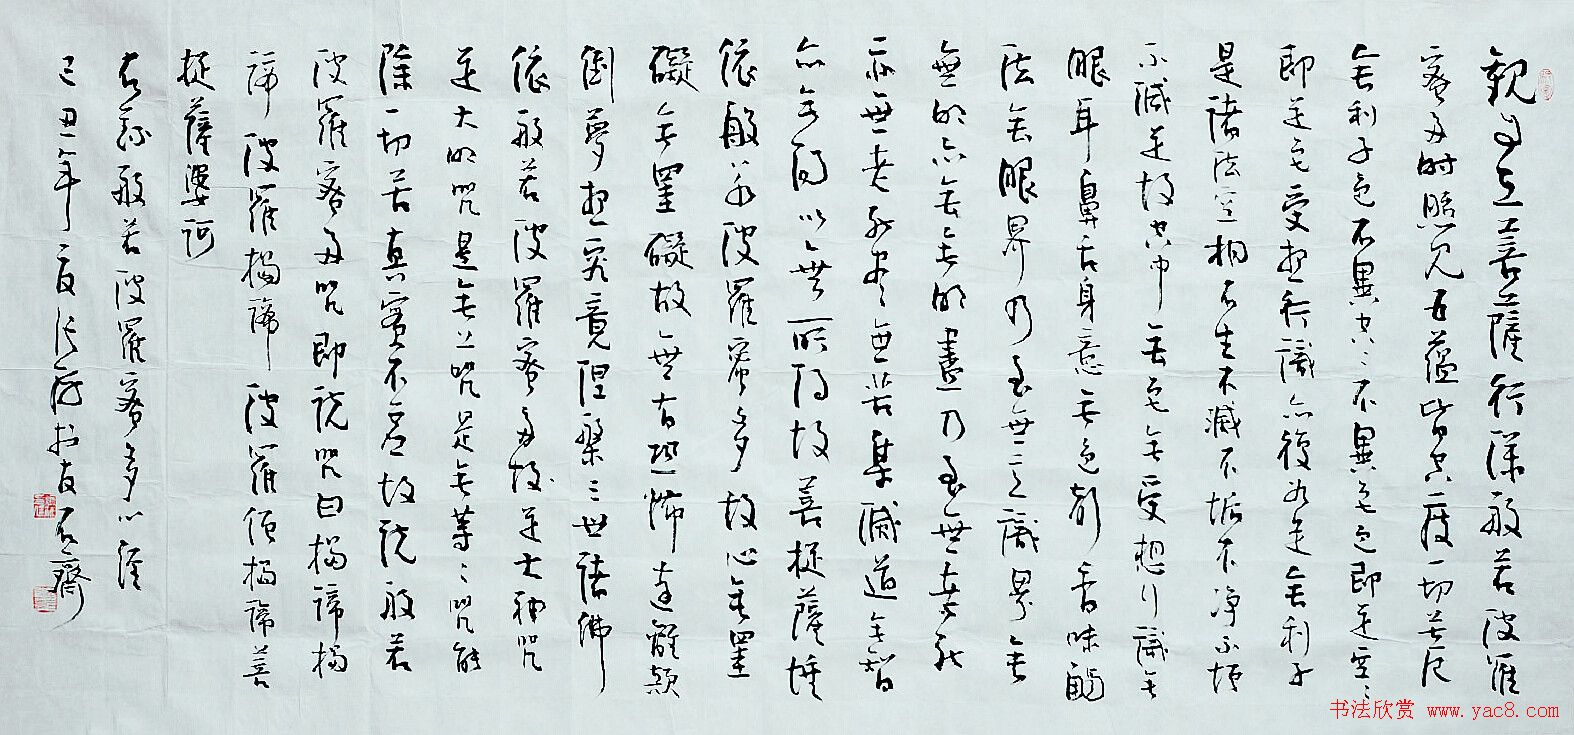 觀自在菩薩行深般若波羅
蜜多時照見五蘊皆空度一切苦厄
舍利子色不異空〻不異色色即是空〻
即是色受想行識亦復如是舍利子
是諸法空相不生不滅不垢不净不增
不減是故空中無色無受想行識無
眼耳鼻舌身意無色聲香味觸
法無眼界乃至無意識界無
無明亦無無明盡乃至無老死
亦無老死盡無苦集滅道無智
亦無得以無所得故菩提薩埵
依般若波羅蜜多故心無罣
礙無罣礙故無有恐怖遠離顛
倒夢想究竟涅槃三世諸佛
依般若波羅蜜多故是大神咒
是大明咒是無上咒是無等〻咒能
除一切苦真實不虛故說般若
波羅蜜多咒即說咒曰揭諦揭
諦波羅揭諦波羅僧揭諦菩
提薩婆訶
右錄般若波羅蜜多心經
己丑年夏 石齋
书法欣赏 www.yac8.com